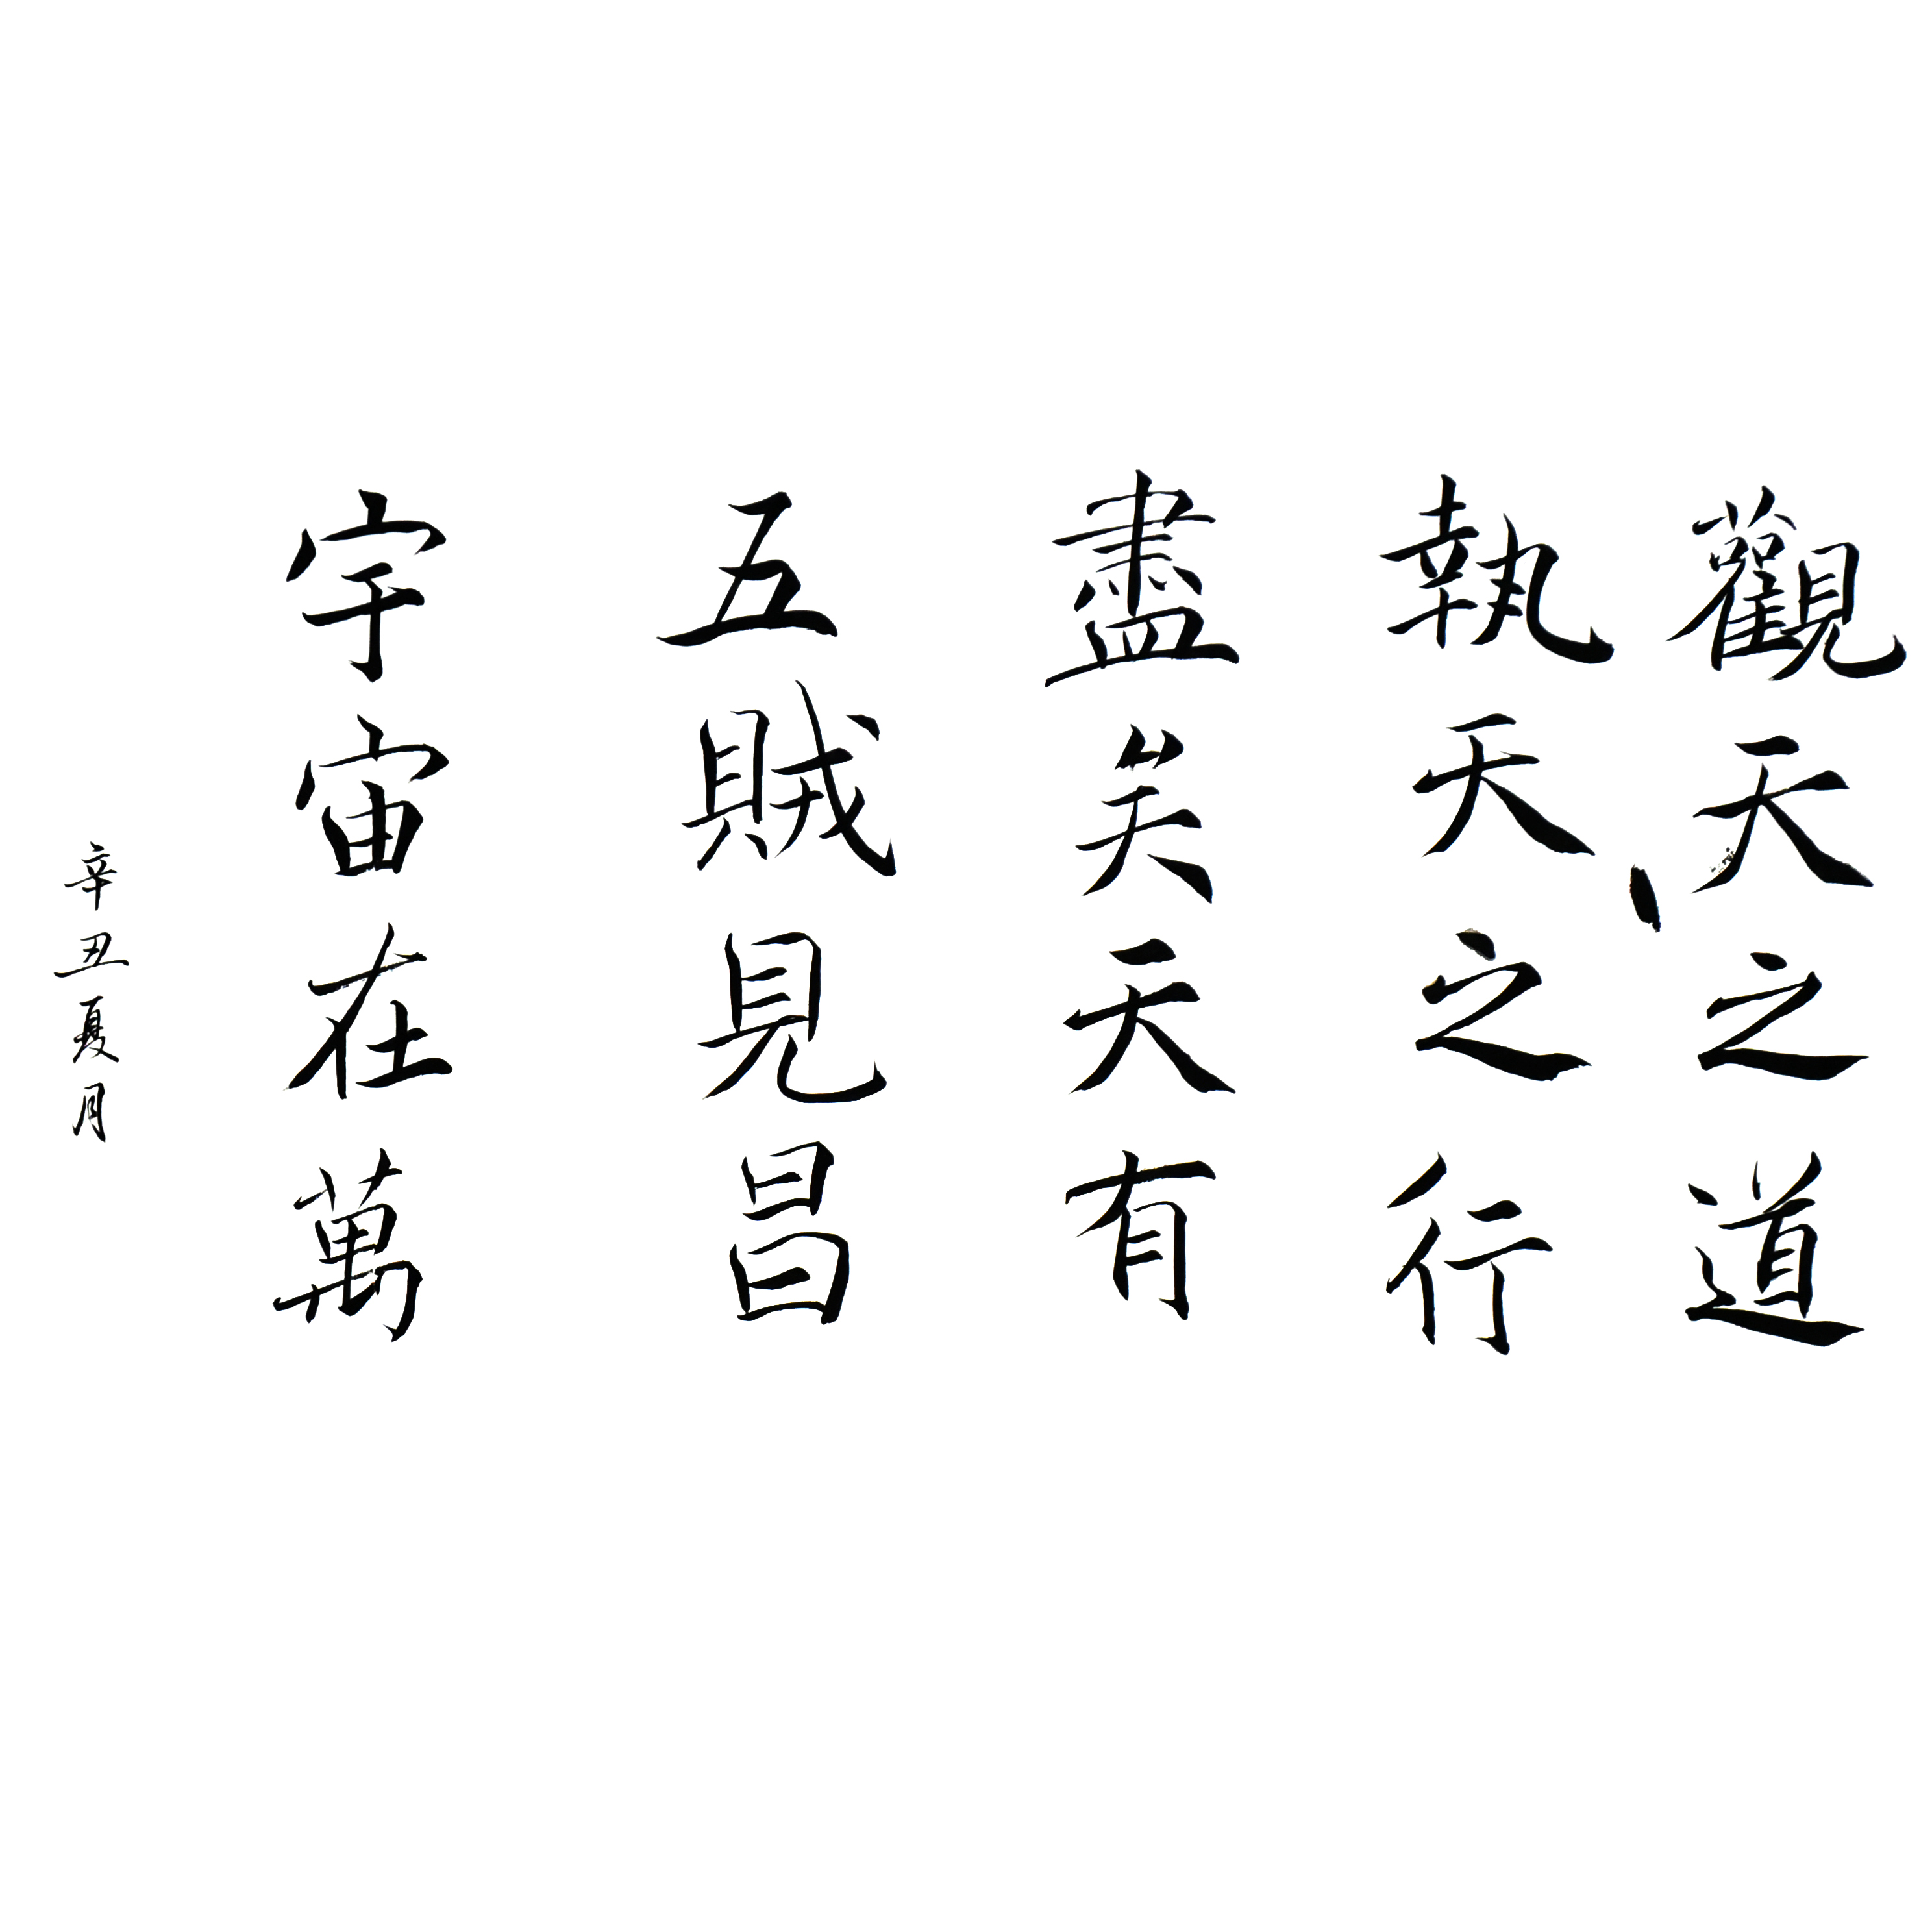 觀天之道
執天之行
盡矣天有
五賊見昌
宇宙在萬
辛丑夏月